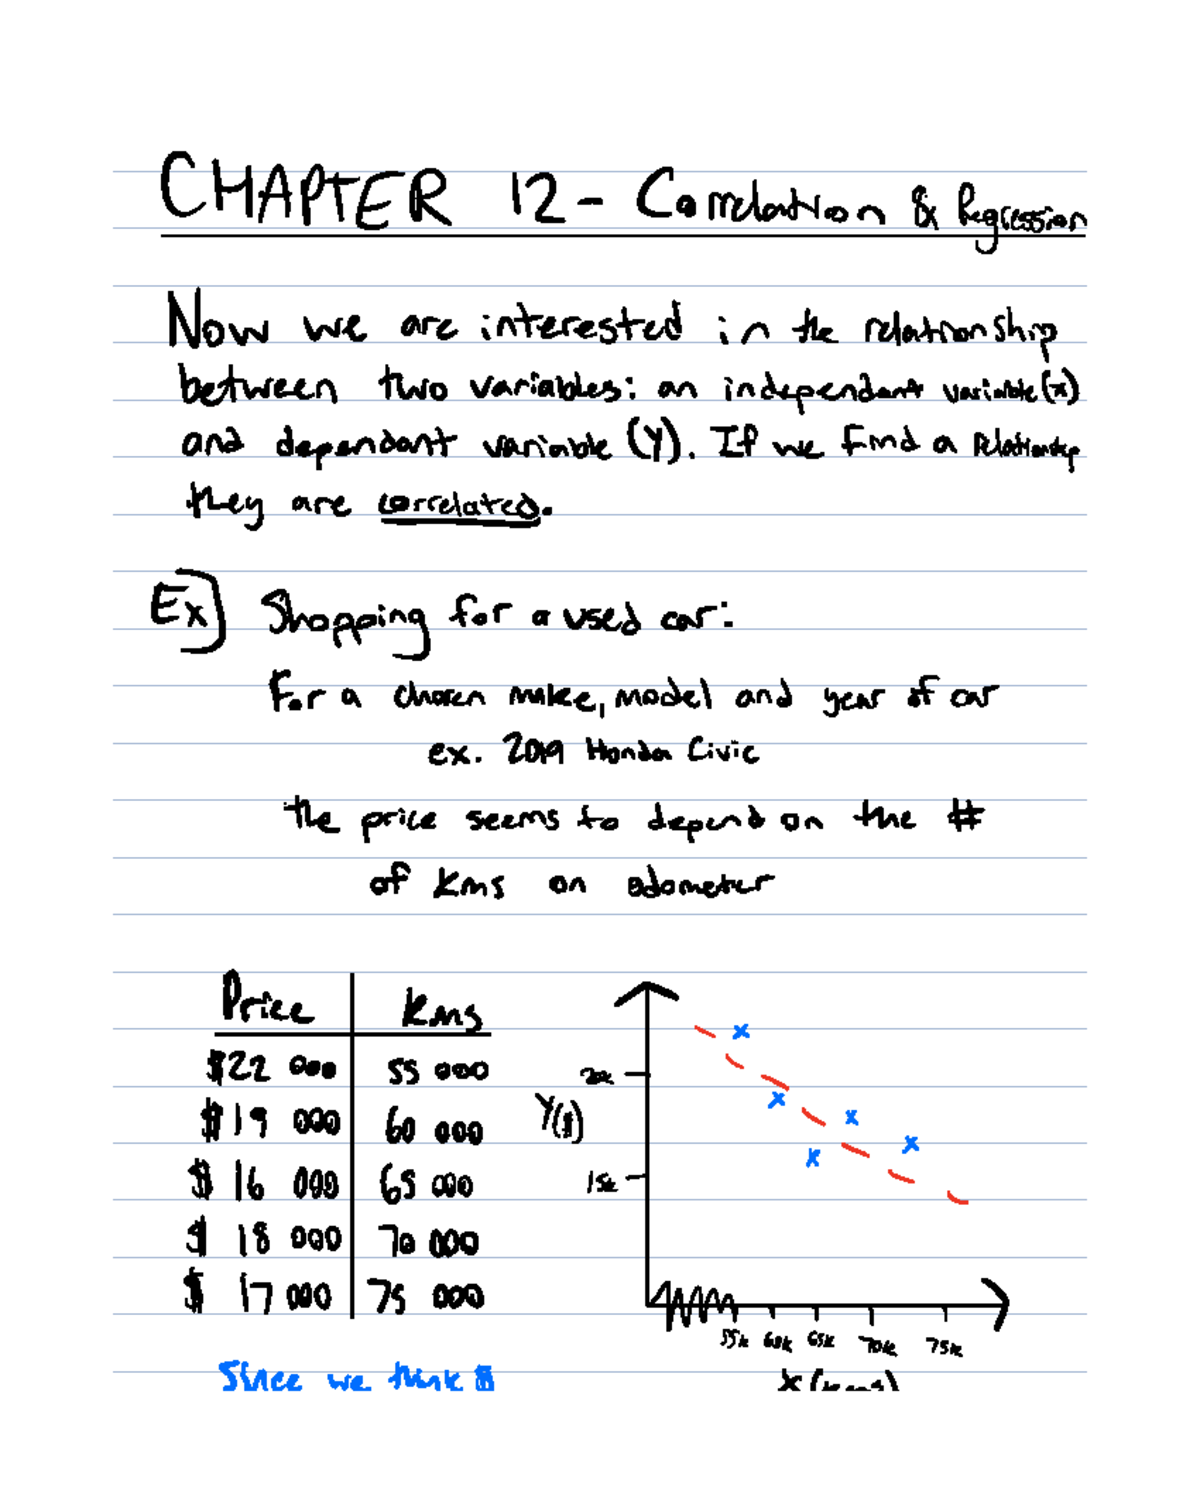 CHAPTER 12 - Correlation & Regression
Now we are interested in the relationship
between two variables: an independant variable (x)
and dependant variable (Y). If we find a relationship
they are correlated.
Ex] Shopping for a used car:
For a chosen make, model and year of car
ex. 2019 Honda Civic
the price seems to depend on the #
of kms on odometer
Price kms
$22 000 55 000
$19 000 60 000
$ 16 000 65 000
$ 18 000 70 000
$ 17 000 75 000
Y($)
20k
15k
55k 60k 65k 70k 75k
x (kms)
Since we think